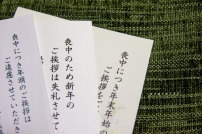 喪中につき年末年始の
ご挨拶を
喪中のため新年の
ご挨拶は失礼させて
喪中につき年頭のご挨拶は
ご遠慮させていただき